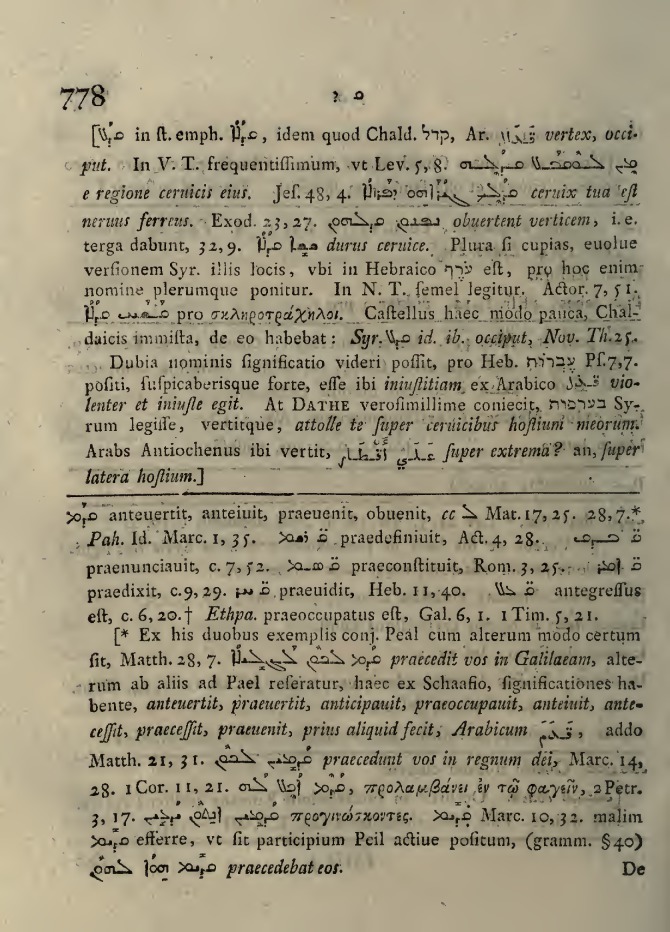 778 ܩ ܕ
[ܩܕܠ in ſt. emph. ܩܕܠܐ, idem quod Chald. קדל, Ar. vertex, occi-
put. In V. T. frequentiſſimum, vt Lev. 5, 8. ܡܢ ܠܘܩܒܠ ܩܕܠܗ
e regione ceruicis eius. Jeſ. 48, 4. ܩܕܠܟ ceruix tua eſt
neruus ferreus. Exod. 23, 27. obuertent verticem, i. e.
terga dabunt, 32, 9. ܩܫܐ ܩܕܠܐ durus ceruice. Plura ſi cupias, euolue
verſionem Syr. illis locis, vbi in Hebraico ערף eſt, pro hoc enim
nomine plerumque ponitur. In N. T. ſemel legitur. Actor. 7, 51.
ܩܫܝܝ ܩܕܠܐ pro σκληροτράχηλοι. Caſtellus haec modo pauca, Chal-
daicis immiſta, de eo habebat: Syr. ܩܕܠ id. ib. occiput, Nov. Th. 25.
Dubia nominis ſignificatio videri poſſit, pro Heb. עברות Pſ. 7, 7.
poſiti, ſuſpicaberisque forte, eſſe ibi iniuſtitiam ex Arabico vio-
lenter et iniuſte egit. At DATHE veroſimillime coniecit, בערפות Sy-
rum legiſſe, vertitque, attolle te ſuper ceruicibus hoſtium meorum.
Arabs Antiochenus ibi vertit, ſuper extrema? an, ſuper
latera hoſtium.]
ܩܕܡ anteuertit, anteiuit, praeuenit, obuenit, cc ܠ Mat. 17, 25. 28, 7.*
Pah. Id. Marc. 1, 35. praedefiniuit, Act. 4, 28.
praenunciauit, c. 7, 52. praeconſtituit, Rom. 3, 25.
praedixit, c. 9, 29. praeuidit, Heb. 11, 40. antegreſſus
eſt, c. 6, 20.† Ethpa. praeoccupatus eſt, Gal. 6, 1. 1 Tim. 5, 21.
[* Ex his duobus exemplis conj. Peal cum alterum modo certum
ſit, Matth. 28, 7. ܩܕܡ ܠܟܘܢ ܠܓܠܝܠܐ praecedit vos in Galilaeam, alte-
rum ab aliis ad Pael referatur, haec ex Schaafio, ſignificationes ha-
bente, anteuertit, praeuertit, anticipauit, praeoccupauit, anteiuit, ante-
ceſſit, praeceſſit, praeuenit, prius aliquid fecit, Arabicum , addo
Matth. 21, 31. ܩܕܡܝܢ ܠܟܘܢ praecedunt vos in regnum dei, Marc. 14,
28. 1 Cor. 11, 21. ܩܕܡ ܐܟܠ ܠܗ, προλαμβάνει ἐν τῷ φαγεῖν, 2 Petr.
3, 17. προγινώσκοντες. Marc. 10, 32. malim
efferre, vt ſit participium Peil actiue poſitum, (gramm. § 40)
ܩܕܝܡ ܗܘܐ ܠܗܘܢ praecedebat eos.
De